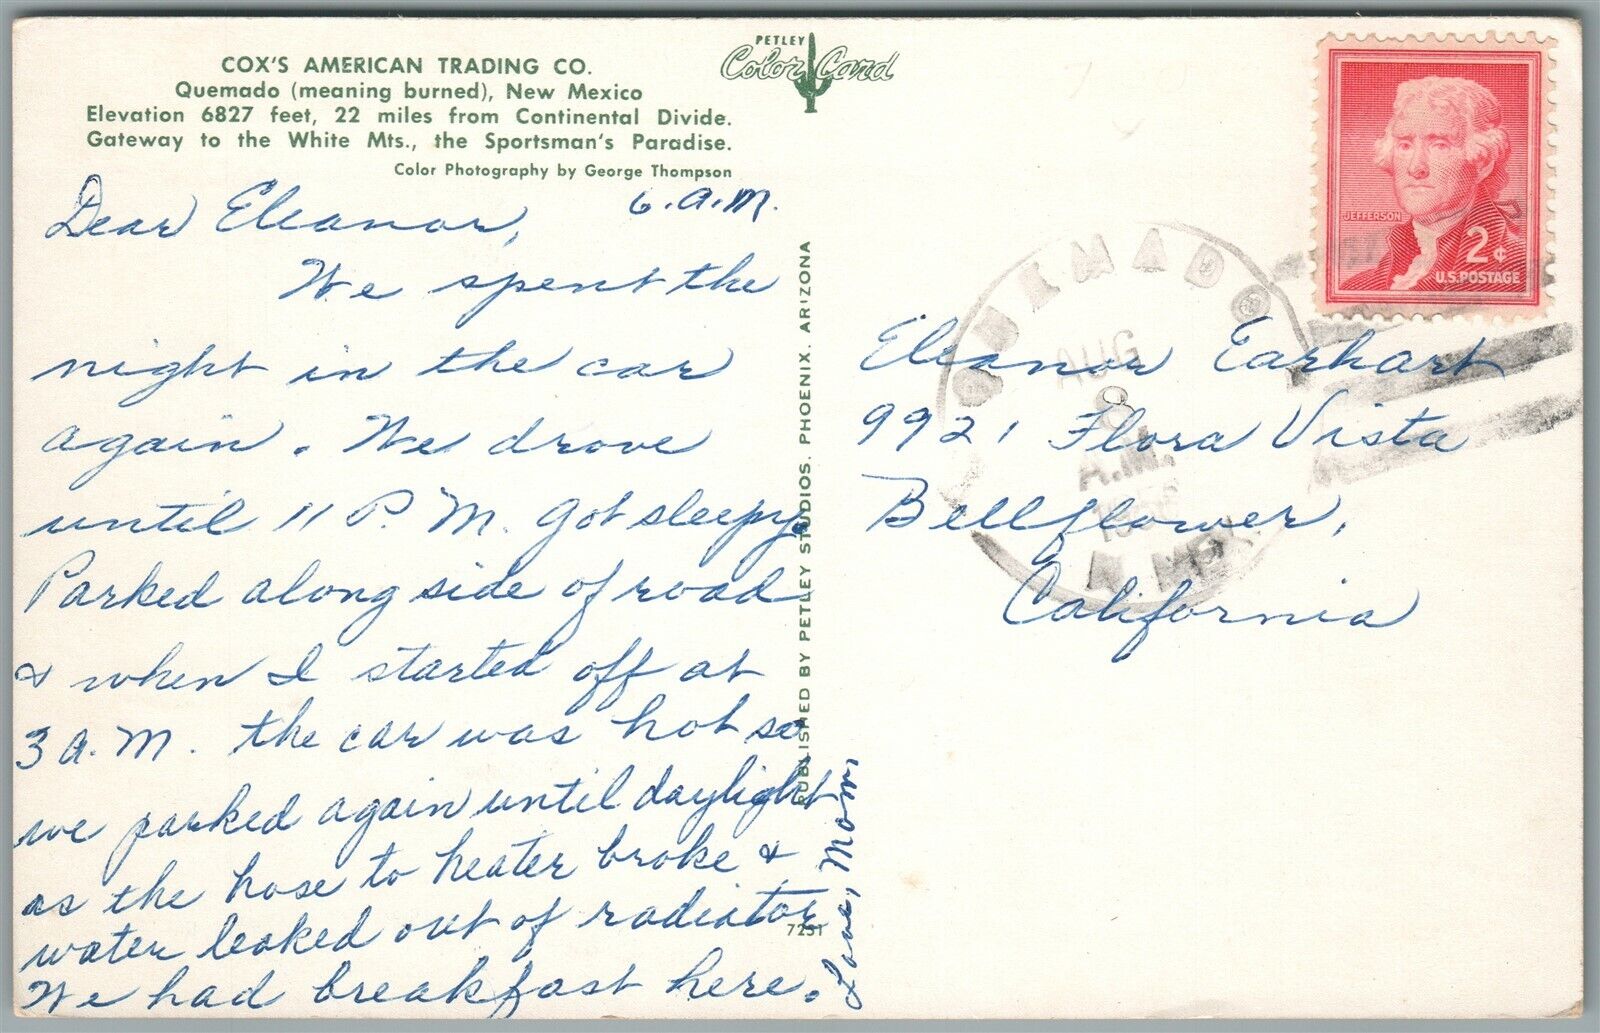 COX'S AMERICAN TRADING CO.
Quemado (meaning burned), New Mexico
Elevation 6827 feet, 22 miles from Continental Divide.
Gateway to the White Mts., the Sportsman's Paradise.
Color Photography by George Thompson
PETLEY
Color Card
6. A.M.
Dear Eleanor,
We spent the
night in the car
again. We drove
until 11 P.M. Got sleepy.
Parked along side of road
& when I started off at
3 A.M. the car was hot so
we parked again until daylight
as the hose to heater broke &
water leaked out of radiator
We had breakfast here.
Love, Mom
7251
PUBLISHED BY PETLEY STUDIOS, PHOENIX, ARIZONA
JEFFERSON
2¢
U.S. POSTAGE
QUEMADO
AUG
8
A.M.
N. MEX.
Eleanor Earhart
9921 Flora Vista
Bellflower,
California